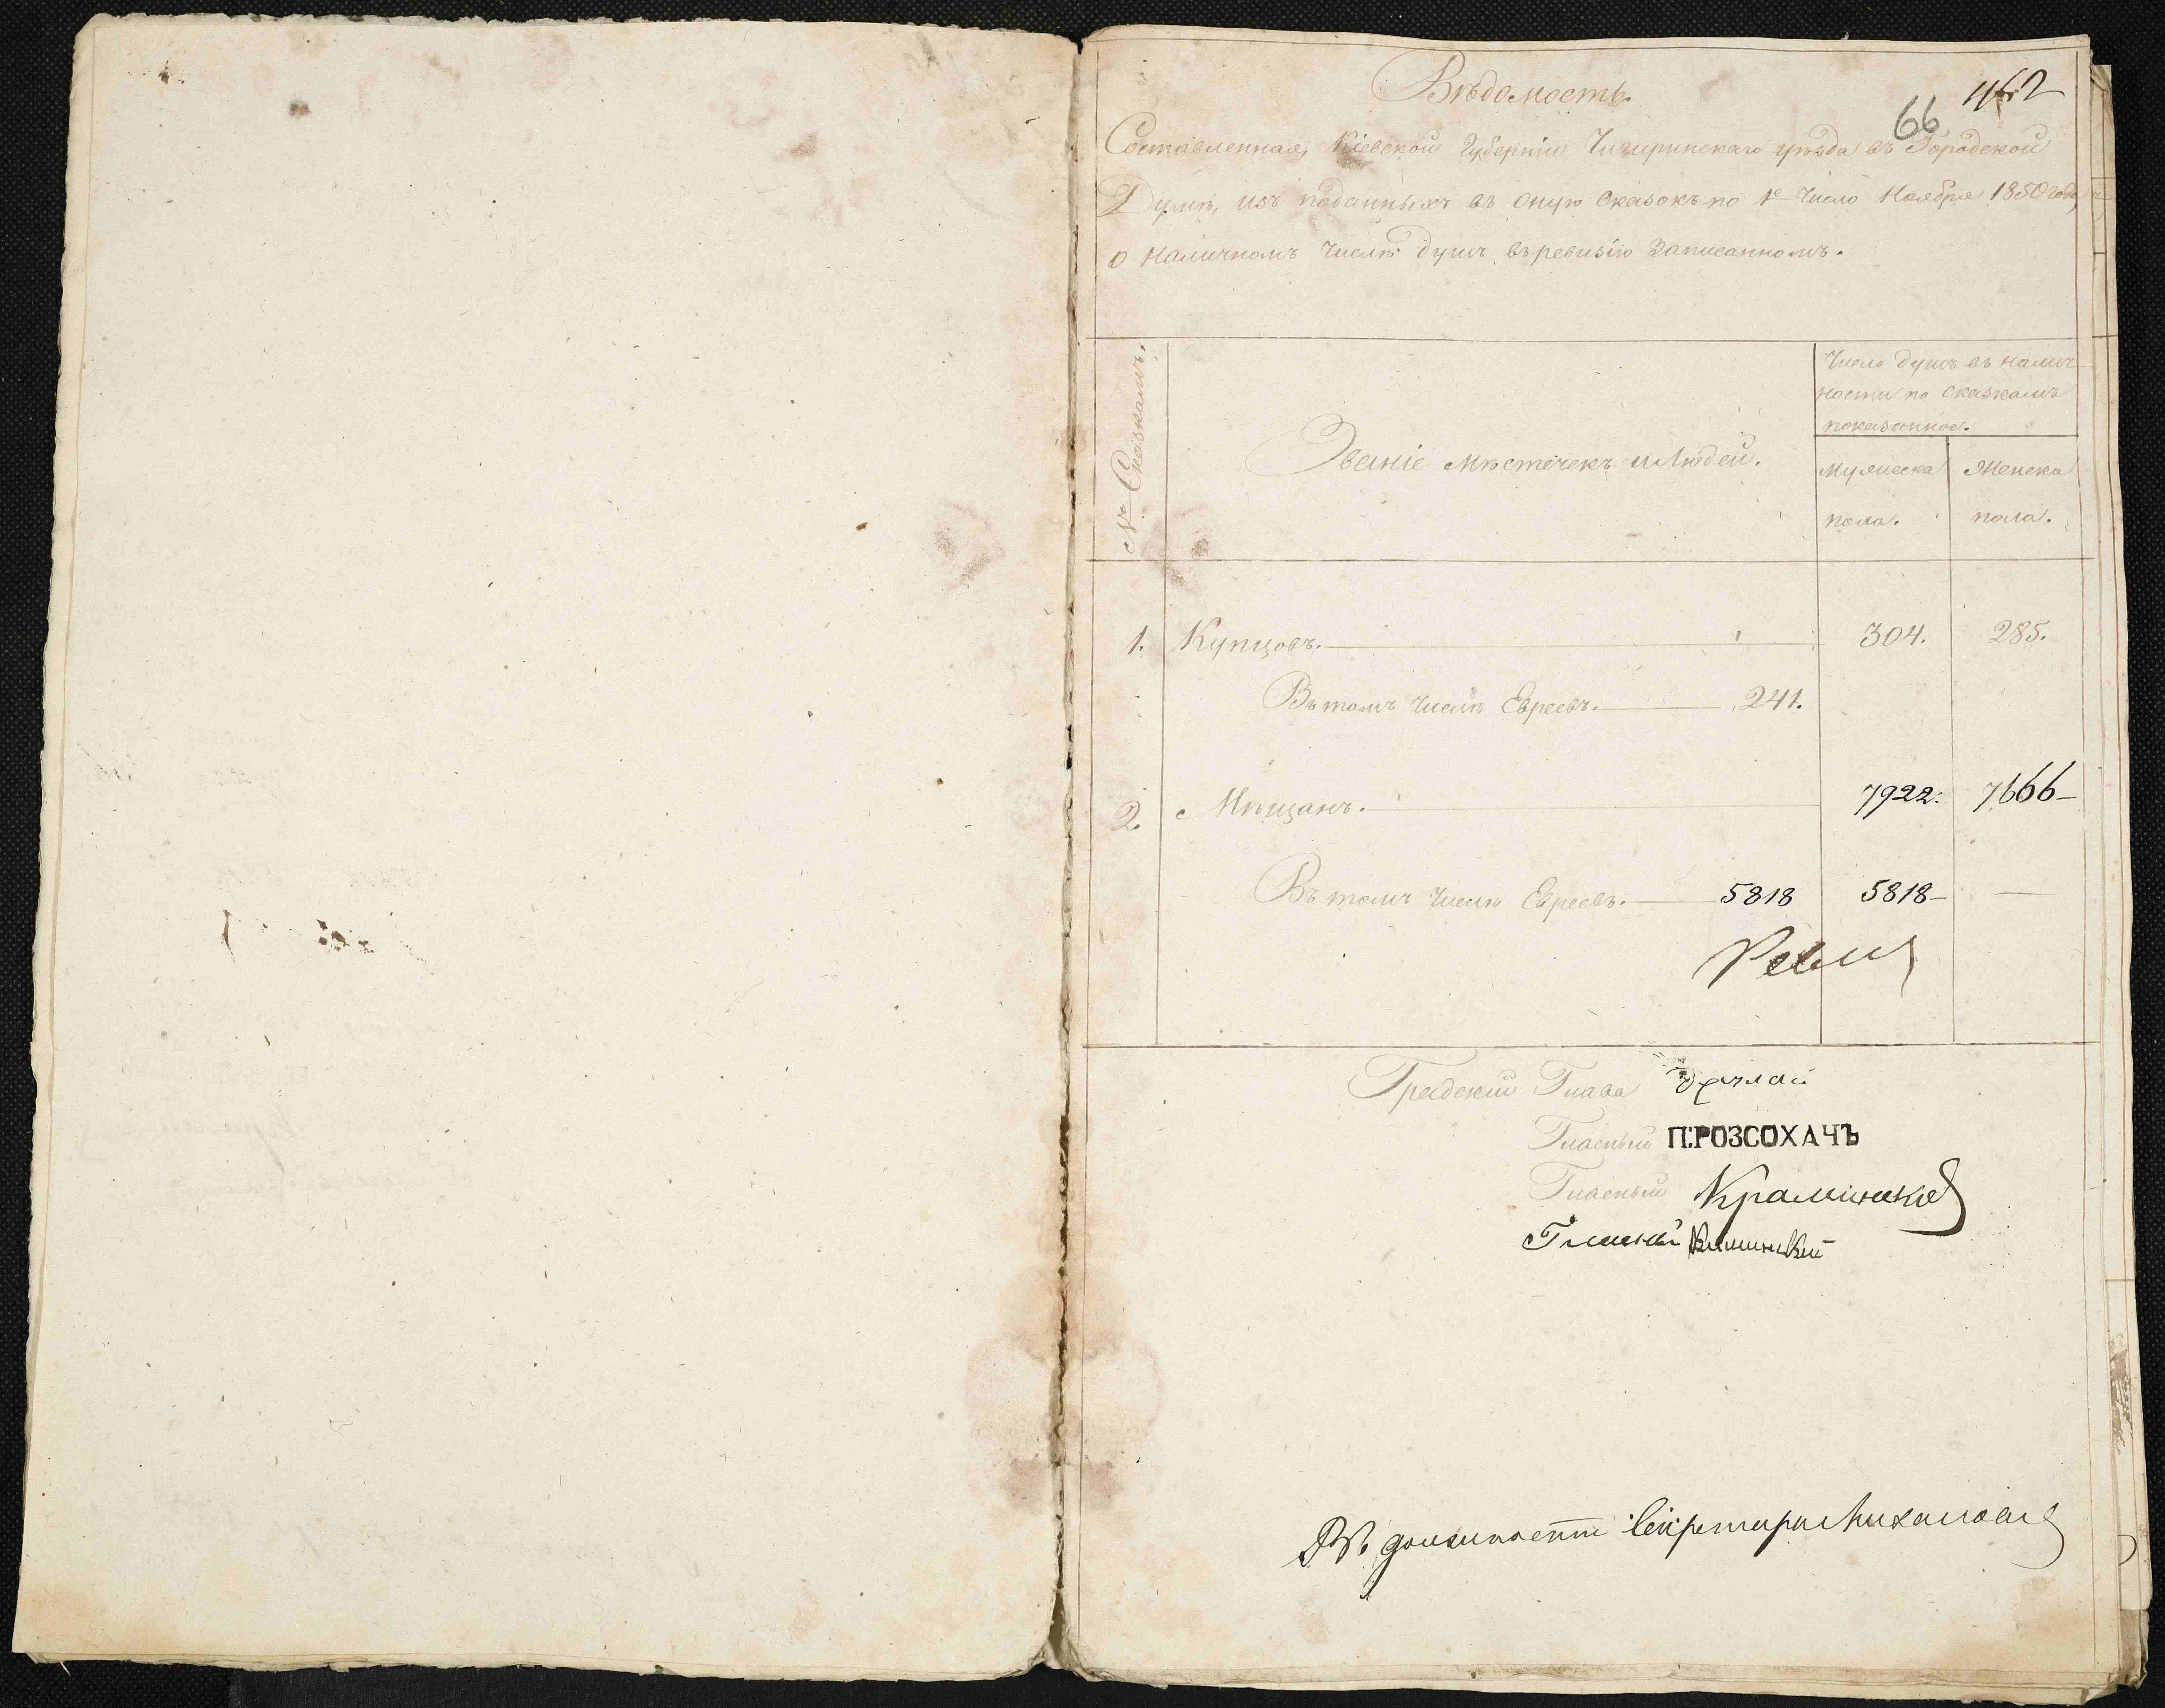 Вѣдомость.
462
66
Составленная, Кіевской Губерніи Чигиринскаго уѣзда въ Городской
Думѣ, изъ поданныхъ въ оную сказокъ по 1е Число Ноября 1850 года,
о наличномъ числѣ душъ въ ревизію записанномъ.
№ Сказкамъ.
Званіе мѣстечекъ и людей.
Число душъ въ налич-
ности по сказкамъ
показанное.
Мужеска Женска
пола. пола.
1. Купцовъ. 304. 285.
Въ томъ числѣ Евреевъ. 241.
2. Мѣщанъ. 7922. 7666
Въ томъ числѣ Евреевъ. 5818 5818
Градскій Глава
Гласный П:РОЗСОХАЧЪ
Гласный
Гласный
Въ должности Секретаря